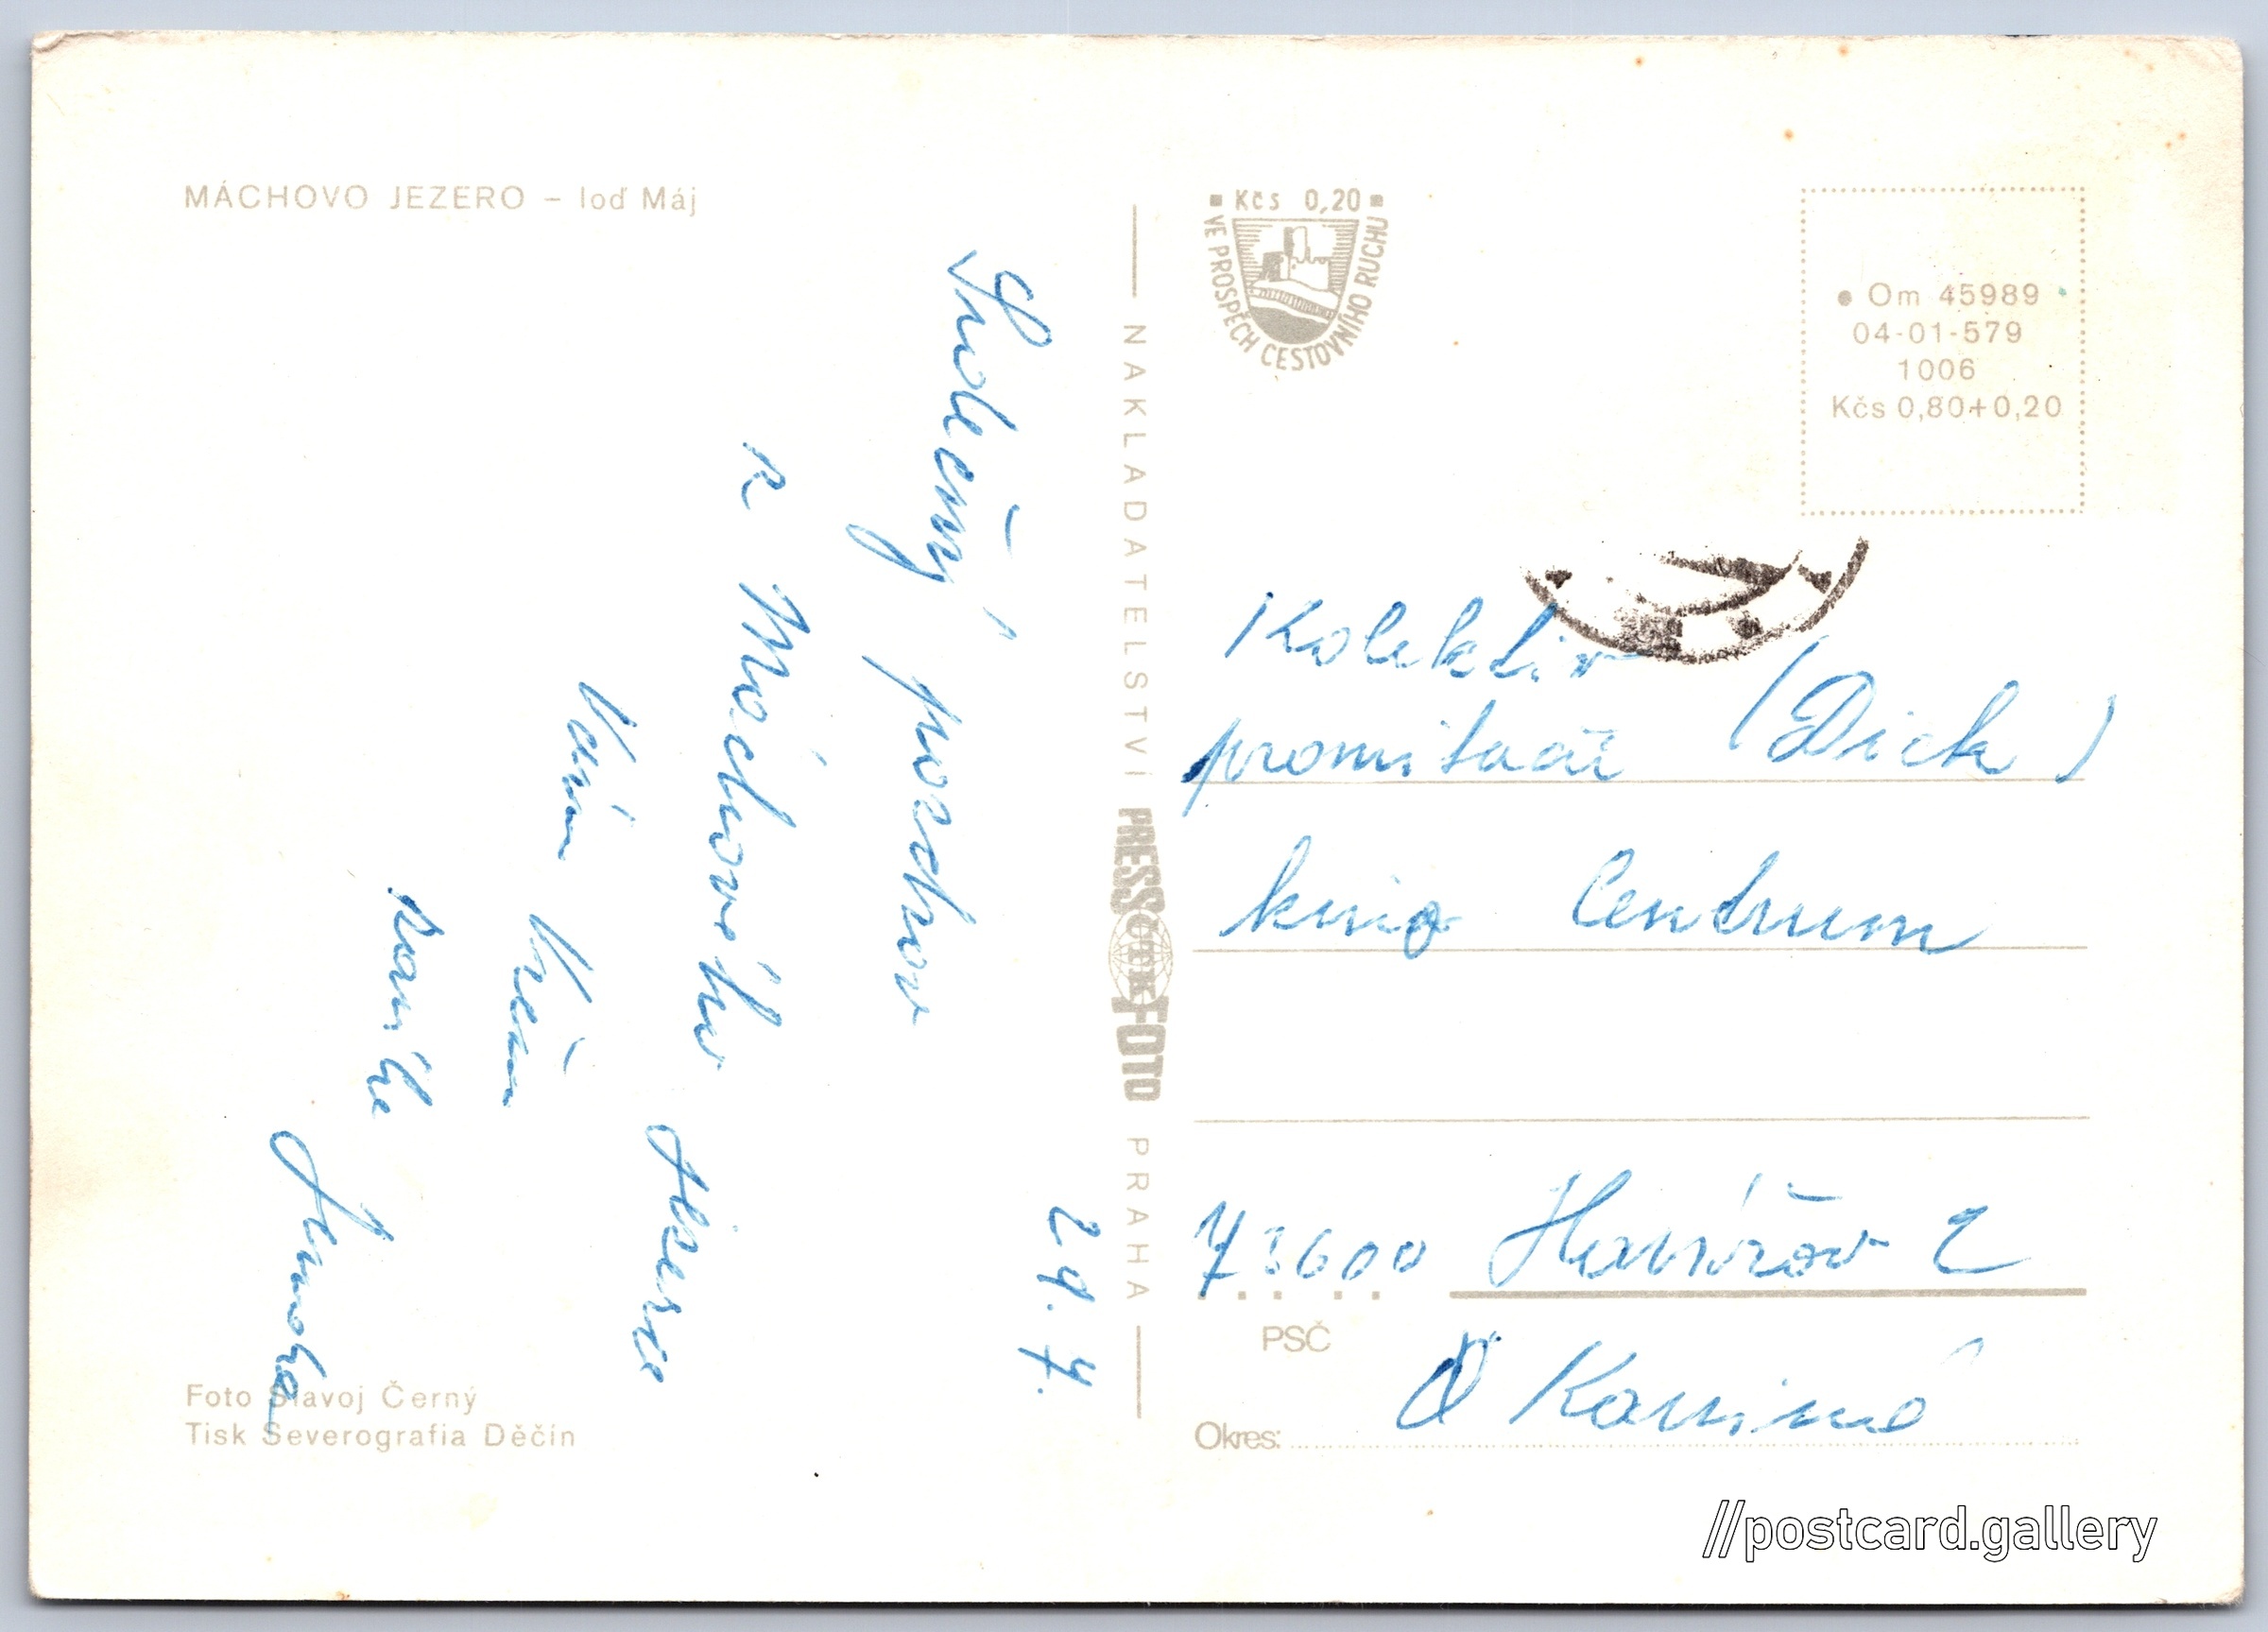 MÁCHOVO JEZERO – loď Máj
29. 7.
Srdečný pozdrav
z Máchového Jezera
Vám Všem
Jarmila
Foto Slavoj Černý
Tisk Severografia Děčín
NAKLADATELSTVÍ PRESSFOTO PRAHA
ČTK
Kčs 0,20
VE PROSPĚCH CESTOVNÍHO RUCHU
Om 45989
04-01-579
1006
Kčs 0,80+0,20
Kolektiv
promítačů (Dick)
kino Centrum
73600 Havířov 2
PSČ
Okres: O Karviná
//postcard.gallery